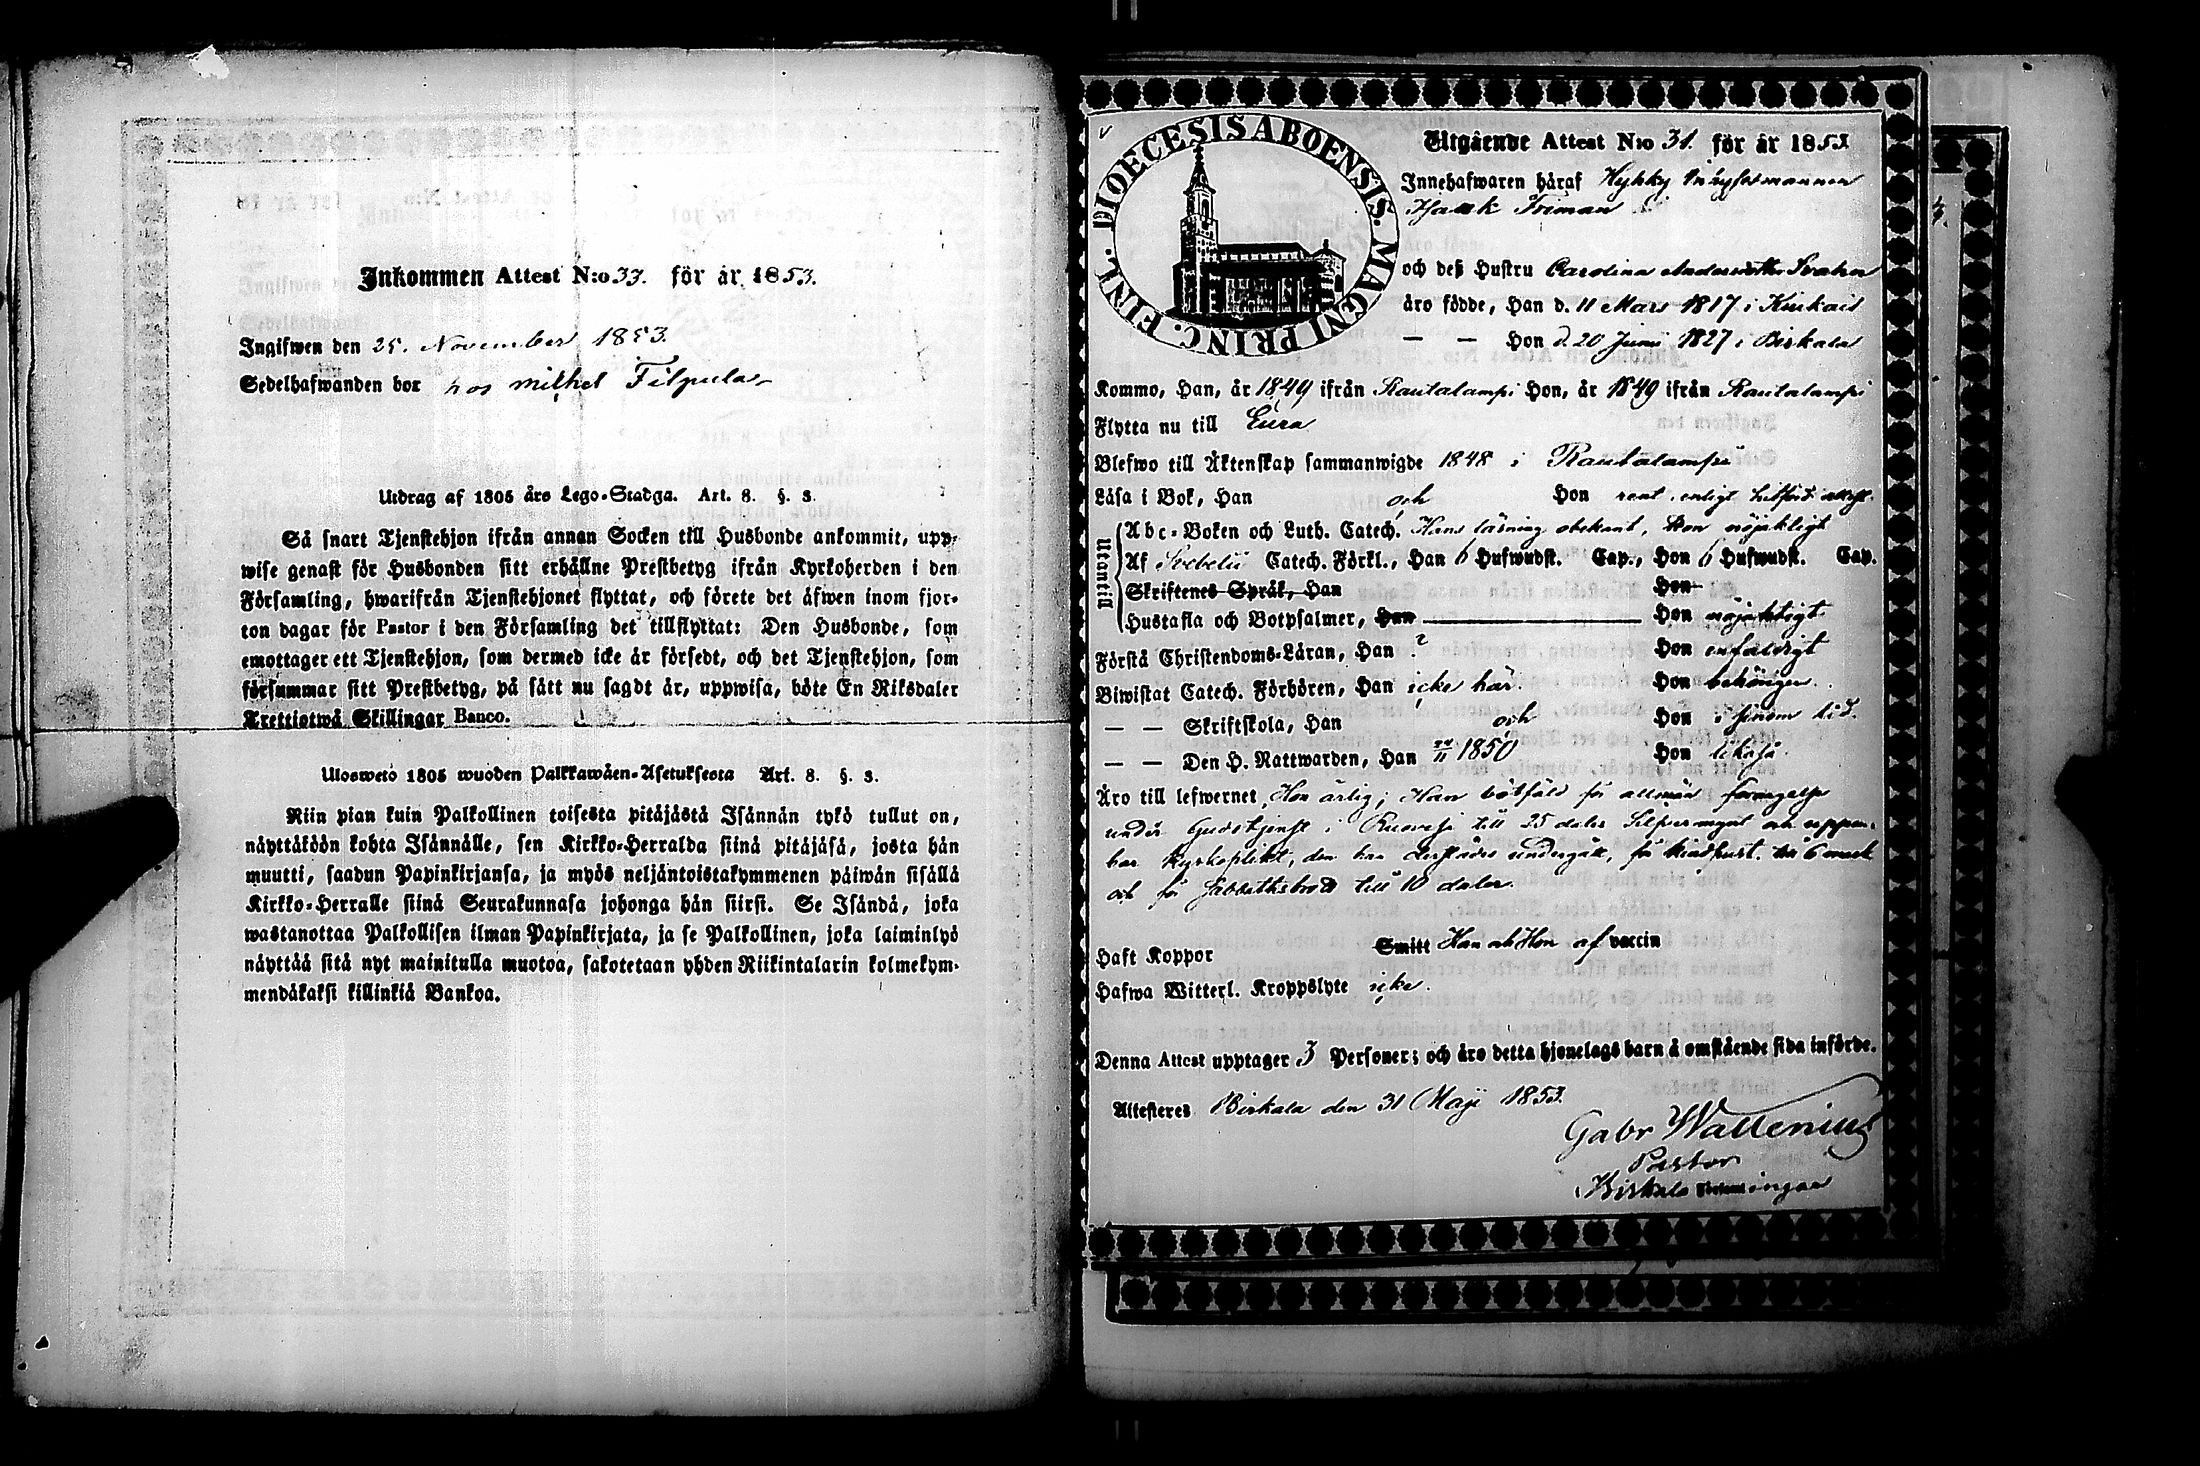 Inkommen Attest N:o 33. för år 1853.
Ingifwen den 25. November 1853.
Sedelhafwanden bor hos Mickel Filpula
Utdrag af 1805 års Lego-Stadga. Art. 8. §. 3.
Så snart Tjenstehjon ifrån annan Socken till Husbonde ankommit, upp-
wise genast för Husbonden sitt erhållne Prestbetyg ifrån Kyrkoherden i den
Församling, hwarifrån Tjenstehjonet flyttat, och förete det äfwen inom fjor-
ton dagar för Pastor i den Församling det tillflyttat: Den Husbonde, som
emottager ett Tjenstehjon, som dermed icke är försedt, och det Tjenstehjon, som
försummar sitt Prestbetyg, på sätt nu sagdt är, uppwisa, böte En Riksdaler
Trettiotwå Skillingar Banco.
Ulosweto 1805 wuoden Palkkawäen-Asetuksesta Art. 8. §. 3.
Niin pian kuin Palkollinen toisesta pitäjästä Isännän tykö tullut on,
näyttäköön kohta Isännälle, sen Kirkko-Herralda siinä pitäjäsä, josta hän
muutti, saadun Papinkirjansa, ja myös neljäntoistakymmenen päiwän sisällä
Kirkko-Herralle siinä Seurakunnasa johonga hän siirsi. Se Isändä, joka
wastanottaa Palkollisen ilman Papinkirjata, ja se Palkollinen, joka laiminlyö
näyttää sitä nyt mainitulla muotoa, sakotetaan yhden Riikintalarin kolmekym-
mendäkaksi killinkiä Bankoa.
DIOECESIS ABOENSIS. MAGNI PRINC. FINL.
Utgående Attest N:o 31. för år 1853
Innehafwaren häraf Hyhky Inhysesmannen
Isaak Friman
och deß Hustru Carolina Andersdotter Svahn
äro födde, Han d. 11 Mars 1817 i Kiukais
— — Hon d. 20 Junii 1827 i Birkala
Kommo, Han, år 1849 ifrån Rautalampi Hon, år 1849 ifrån Rautalampi
Flytta nu till Eura
Blefwo till Äktenskap sammanwigde 1848 i Rautalampi
Läsa i Bok, Han och Hon rent enligt attest.
Utantill
Abc-Boken och Luth. Catech. Hans läsning obekant, Hon nöjaktigt
Af Svebelii Catech. Förkl., Han 6 Hufwudst. Cap., Hon 6 Hufwudst. Cap.
Skriftenes Språk, Han Hon
Hustafla och Botpsalmer, Han Hon nöjaktigt
Förstå Christendoms-Läran, Han ? Hon enfaldigt
Biwistat Catech. Förhören, Han icke här. Hon behörigen
— — Skriftskola, Han och Hon i sinom tid.
— — Den H. Nattwarden, Han 1850 Hon likaså.
Äro till lefwernet Hon ärlig; Han bötfäld för allmän förargelse
under Gudstjenst i Ruovesi till 25 daler Silfvermynt och uppen-
bar kyrkoplikt, den han derstädes undergått, för till 6 mark
och för Sabbathsbrott till 10 daler.
Haft Koppor Smitt Han och Hon af vaccin
Hafwa Witterl. Kroppslyte icke.
Denna Attest upptager 3 Personer; och äro detta hjonelags barn å omstående sida införde.
Attesteres Birkala den 31 Maji 1853.
Gabr Wallenius
Pastor